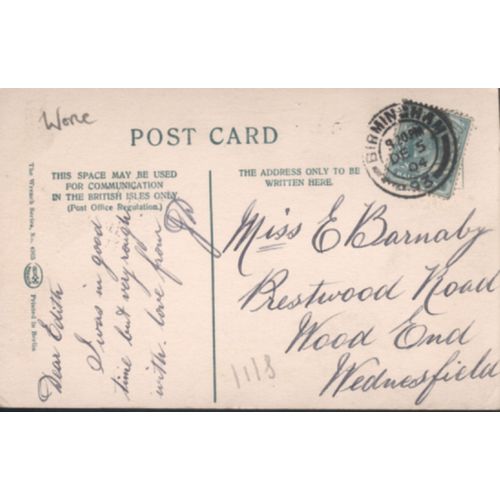 Worc
POST CARD
THIS SPACE MAY BE USED
FOR COMMUNICATION
IN THE BRITISH ISLES ONLY.
(Post Office Regulation.)
THE ADDRESS ONLY TO BE
WRITTEN HERE.
BIRMINGHAM
DE 5
04
93
The Wrench Series, No.
Printed in Berlin
Dear Edith
I was in good
time but very rough
with love from
Miss E Barnaby
Prestwood Road
Wood End
Wednesfield
1118